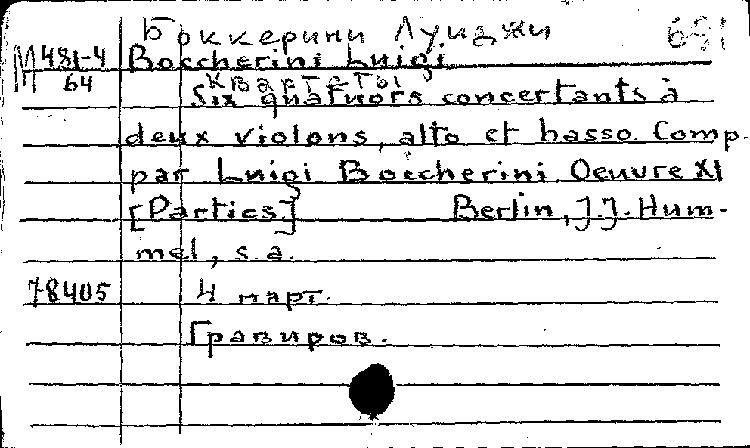 Боккерини Луиджи 691
М 481-4 Boccherini Luigi
64 Квартеты
Six quatuors concertants à
deux violons, alto et basso. Comp.
par Luigi Boccherini Oeuvre XI
[Parties] Berlin, J.J. Hum-
mel, s.a.
78405 4 парт.
Гравиров.